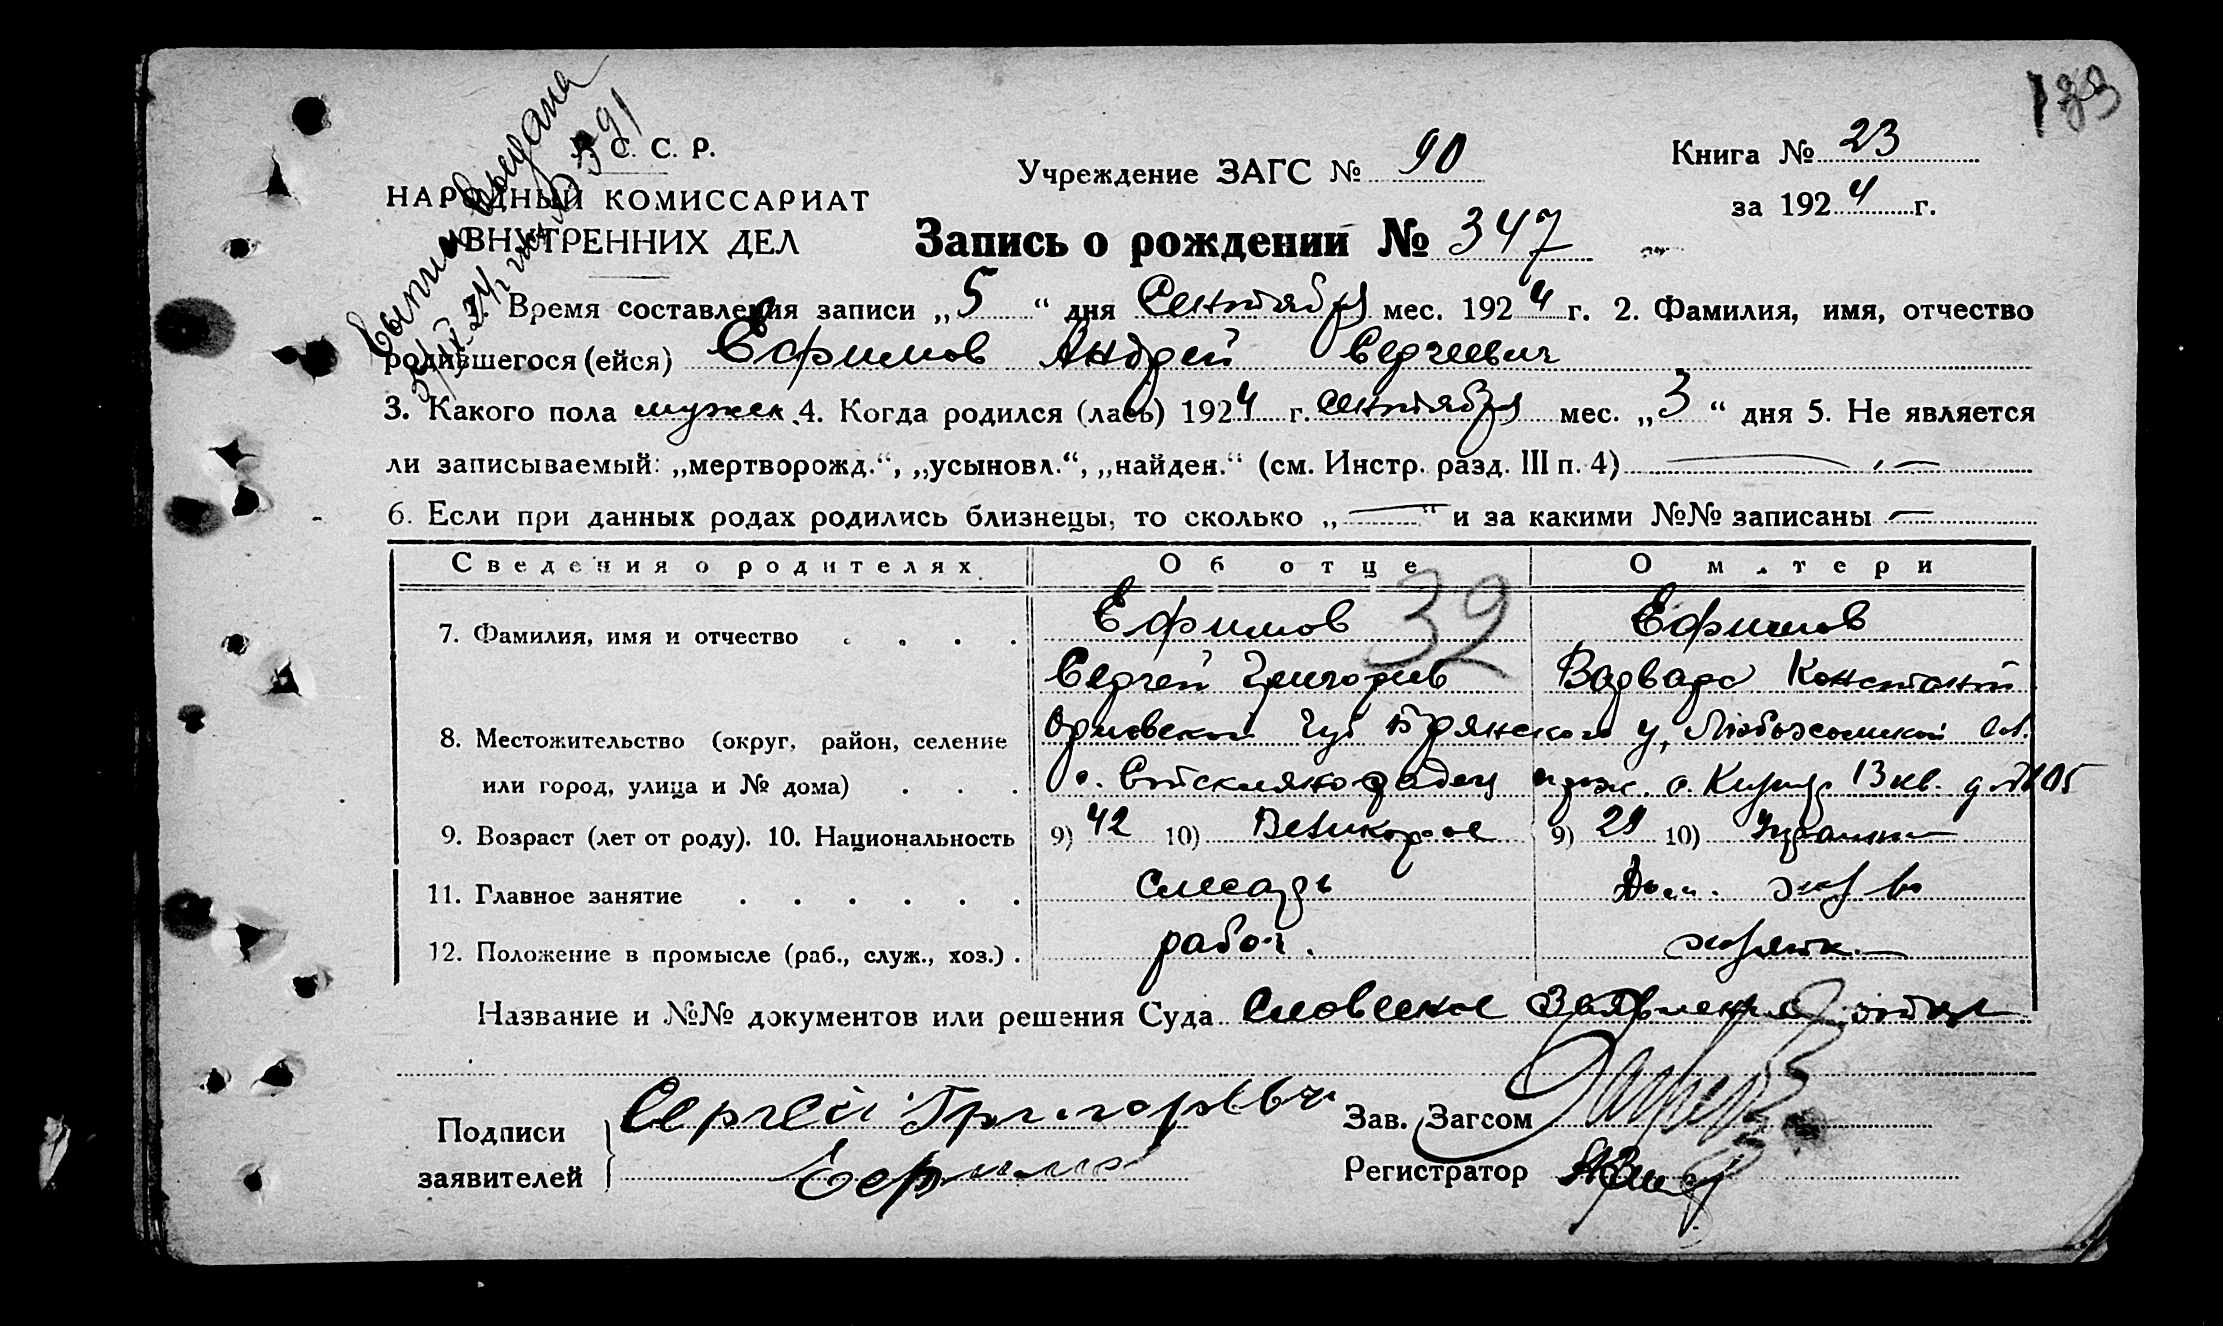 133
Выпись выдана
С. С. Р.
НАРОДНЫЙ КОМИССАРИАТ
ВНУТРЕННИХ ДЕЛ
Учреждение ЗАГС № 90
Книга № 23
за 1924 г.
Запись о рождении № 347
Время составления записи „5“ дня Сентября мес. 1924 г. 2. Фамилия, имя, отчество
родившегося (ейся) Ефимов Андрей Сергеевич
3. Какого пола мужск. 4. Когда родился (лась) 1924 г. сентября мес. „3“ дня 5. Не является
ли записываемый: „мертворожд.“, „усыновл.“, „найден.“ (см. Инстр. разд. III п. 4) —
6. Если при данных родах родились близнецы, то сколько „—“ и за какими №№ записаны —
Сведения о родителях Об отце О матери
32
7. Фамилия, имя и отчество . . . . Ефимов Ефимов
Сергей Григорьев Варвара Констант
8. Местожительство (округ, район, селение Орловской губ Брянского у,
или город, улица и № дома) . . . 13 кв. д. № 105
9. Возраст (лет от роду). 10. Национальность 9) 42 10) Великорос 9) 29 10)
11. Главное занятие . . . . . . слесарь Дом. хоз во
12. Положение в промысле (раб., служ., хоз.) . рабоч.
Название и №№ документов или решения Суда Словесное Заявление отца
Подписи
заявителей
Сергей Григорьевич
Ефимов
Зав. Загсом
Регистратор